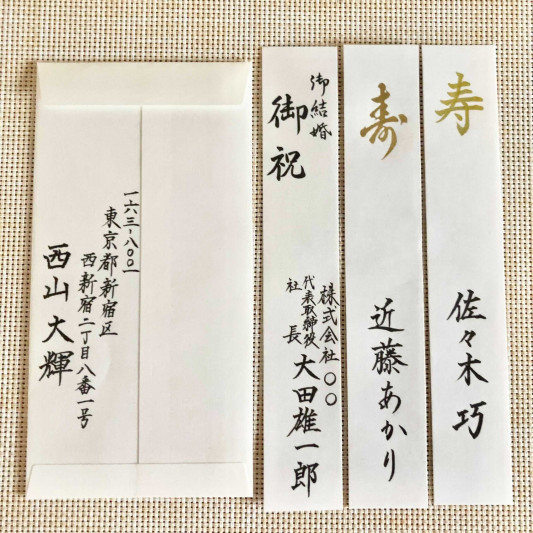 寿
佐々木 巧
寿
近藤あかり
御結婚
御祝
株式会社〇〇
代表取締役
社長
大田雄一郎
一六三-八〇〇一
東京都新宿区
西新宿二丁目八番一号
西山大輝